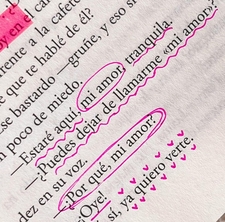 oy en e
rente a la cafete
que te hablé de él?
ese bastardo —gruñe, y eso s
n poco de miedo
—Estaré aquí, mi amor, tranquila.
—¿Puedes dejar de llamarme «mi amor»?
dez en su voz.
—¿Por qué, mi amor?
—¡Oye!
sí, ya quiero verte,